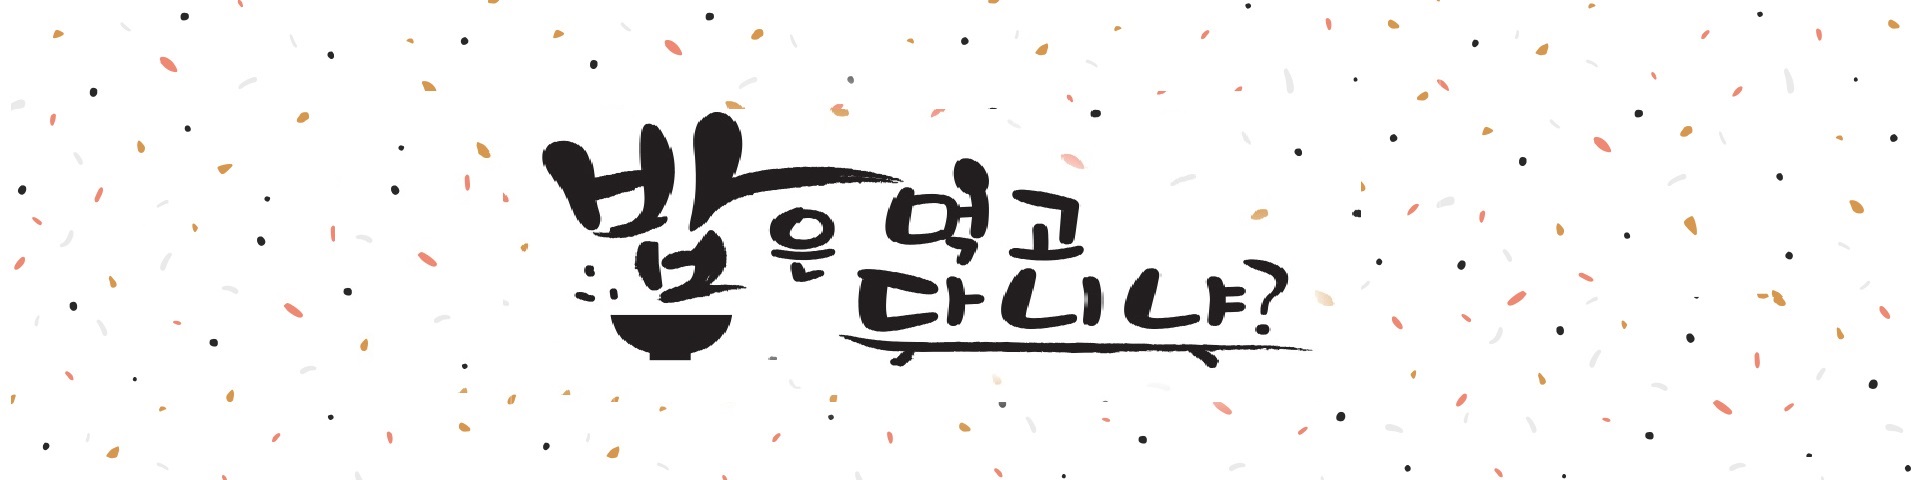 밥은 먹고
다니냐?